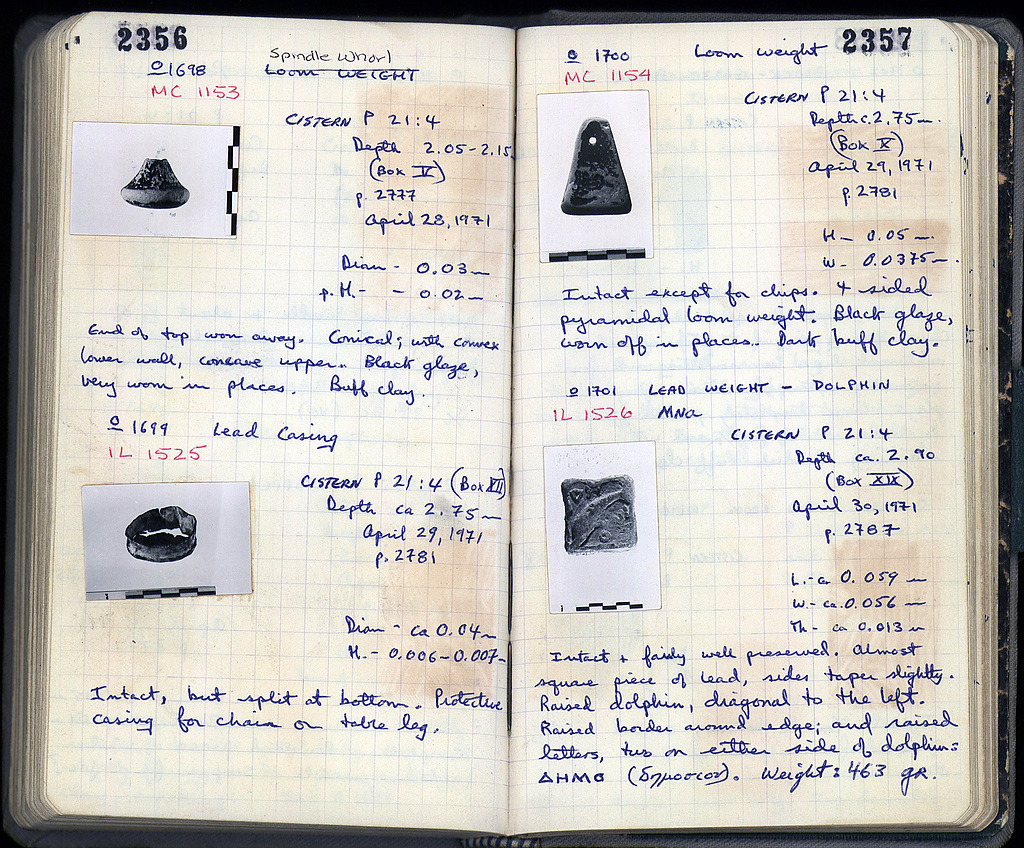 2356
Spindle Whorl
O 1698 LOOM WEIGHT
MC 1153
CISTERN P 21:4
Depth 2.05-2.15
(Box V)
p. 2777
April 28, 1971
Diam - 0.03 m
p. H. - - 0.02 m
End of top worn away. Conical; with convex
lower wall, concave upper. Black glaze,
very worn in places. Buff clay.
O 1699 Lead Casing
IL 1525
CISTERN P 21:4 (Box XII)
Depth ca 2.75 m
April 29, 1971
p. 2781
Diam - ca 0.04 m
H. - 0.006-0.007
Intact, but split at bottom. Protective
casing for chair or table leg.
2357
O 1700 Loom weight
MC 1154
CISTERN P 21:4
Depth c. 2.75 m.
(Box X)
April 29, 1971
p. 2781
H - 0.05 m.
W - 0.0375 m.
Intact except for chips. 4 sided
pyramidal loom weight. Black glaze,
worn off in places. Dark buff clay.
O 1701 LEAD WEIGHT - DOLPHIN
IL 1526 Mna
CISTERN P 21:4
Depth ca. 2.90
(Box XIX)
April 30, 1971
p. 2787
L. - ca 0.059 m
W. - ca. 0.056 m
Th - ca 0.013 m
Intact + fairly well preserved. Almost
square piece of lead, sides taper slightly.
Raised dolphin, diagonal to the left.
Raised border around edge; and raised
letters, two on either side of dolphin:
ΔΗΜΟ (δημοσιον). Weight: 463 gr.